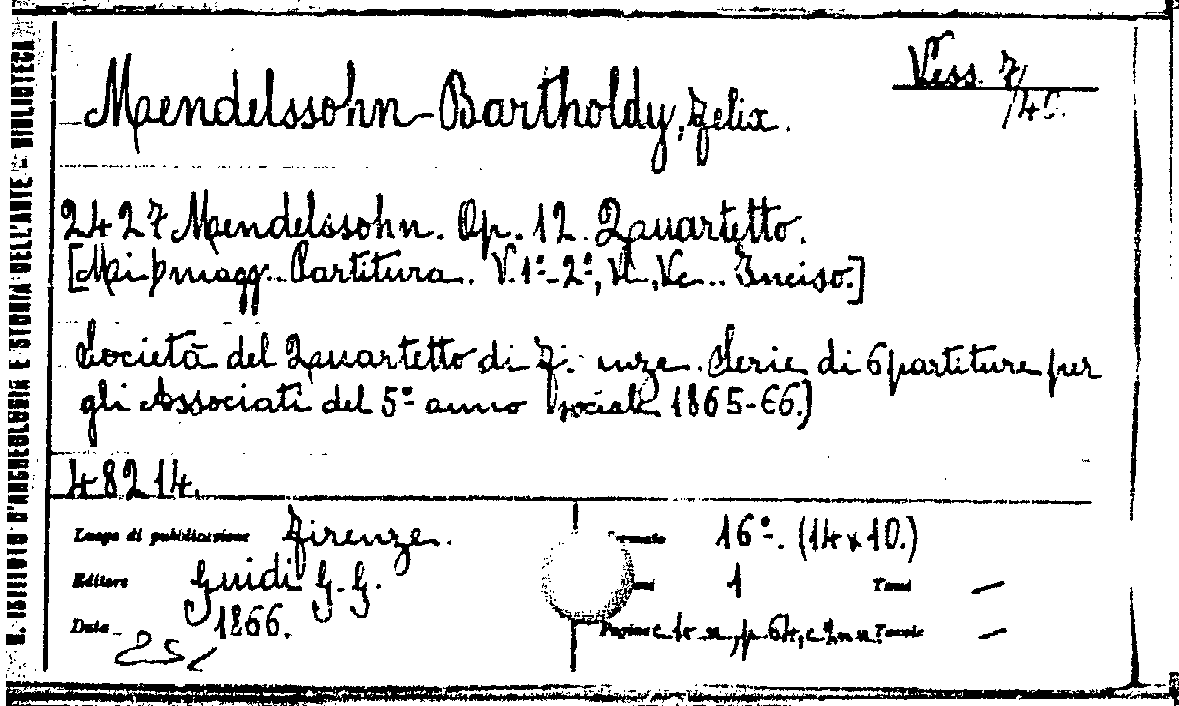 R. ISTITUTO D'ARCHEOLOGIA E STORIA DELL'ARTE - BIBLIOTECA
Vess. 7/
/45.
Mendelssohn-Bartholdy, Felix.
2427 Mendelssohn. Op. 12. Quartetto.
[Mi♭ magg. Partitura. V.1º-2º, Vl., Vc.. Inciso.]
Società del Quartetto di Serie di 6 partiture per
gli Associati del 5º anno sociale 1865-66.)
48214.
Luogo di pubblicazione Firenze. Formato 16º. (14x10.)
Editore Guidi G.G. 1 Tomi —
Data 1866. Pagine p. 64, c 2 n n. Tavole —